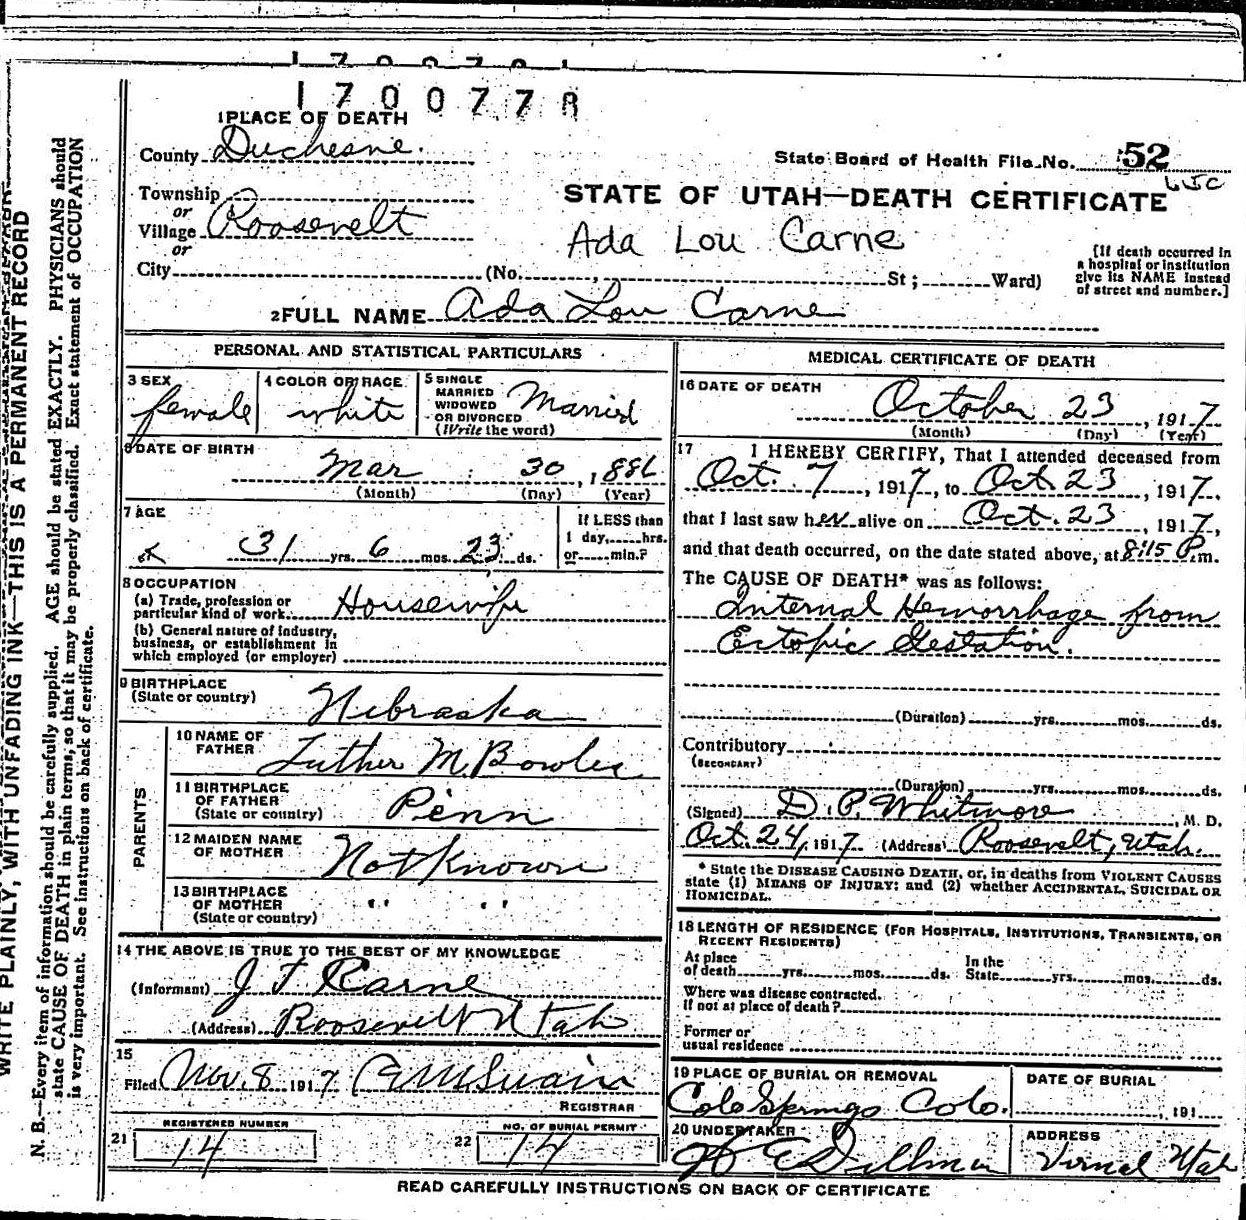 1700778
1 PLACE OF DEATH
County Duchesne.
State Board of Health File No. 52
Township
or
Village Roosevelt
or
City (No. , St ; Ward)
STATE OF UTAH—DEATH CERTIFICATE
Ada Lou Carne
[If death occurred in
a hospital or institution
give its NAME instead
of street and number.]
2 FULL NAME Ada Lou Carne
PERSONAL AND STATISTICAL PARTICULARS
3 SEX
female
4 COLOR OR RACE
white
5 SINGLE
MARRIED
WIDOWED
OR DIVORCED
(Write the word)
Married
6 DATE OF BIRTH
Mar 30, 1886
(Month) (Day) (Year)
7 AGE
31 yrs. 6 mos. 23 ds.
If LESS than
1 day, hrs.
or min.?
8 OCCUPATION
(a) Trade, profession or
particular kind of work Housewife
(b) General nature of industry,
business, or establishment in
which employed (or employer)
9 BIRTHPLACE
(State or country) Nebraska
PARENTS
10 NAME OF
FATHER Luther M. Bowles
11 BIRTHPLACE
OF FATHER
(State or country) Penn
12 MAIDEN NAME
OF MOTHER Not Known
13 BIRTHPLACE
OF MOTHER
(State or country) " "
14 THE ABOVE IS TRUE TO THE BEST OF MY KNOWLEDGE
(Informant) J T Carne
(Address) Roosevelt Utah
15
Filed Nov. 8 1917 M Swain
REGISTRAR
21 REGISTERED NUMBER
14
22 NO. OF BURIAL PERMIT
14
MEDICAL CERTIFICATE OF DEATH
16 DATE OF DEATH
October 23, 1917
(Month) (Day) (Year)
17 I HEREBY CERTIFY, That I attended deceased from
Oct. 7, 1917, to Oct. 23, 1917.
that I last saw her alive on Oct. 23, 1917,
and that death occurred, on the date stated above, at 8:15 P.m.
The CAUSE OF DEATH* was as follows:
Internal Hemorrhage from
Ectopic Gestation.
(Duration) yrs. mos. ds.
Contributory
(SECONDARY)
(Duration) yrs. mos. ds.
(Signed) D. P. Whitmore, M. D.
Oct. 24, 1917 (Address) Roosevelt, Utah.
* State the DISEASE CAUSING DEATH, or, in deaths from VIOLENT CAUSES
state (1) MEANS OF INJURY; and (2) whether ACCIDENTAL, SUICIDAL OR
HOMICIDAL.
18 LENGTH OF RESIDENCE (FOR HOSPITALS, INSTITUTIONS, TRANSIENTS, OR
RECENT RESIDENTS)
At place
of death yrs. mos. ds. In the
State yrs. mos. ds.
Where was disease contracted.
If not at place of death?
Former or
usual residence
19 PLACE OF BURIAL OR REMOVAL
Colo Springs Colo.
DATE OF BURIAL
, 191
20 UNDERTAKER
E Dillman
ADDRESS
Vernal Utah
READ CAREFULLY INSTRUCTIONS ON BACK OF CERTIFICATE
WRITE PLAINLY, WITH UNFADING INK—THIS IS A PERMANENT RECORD
N. B.—Every item of information should be carefully supplied. AGE should be stated EXACTLY. PHYSICIANS should
state CAUSE OF DEATH in plain terms, so that it may be properly classified. Exact statement of OCCUPATION
is very important. See instructions on back of certificate.